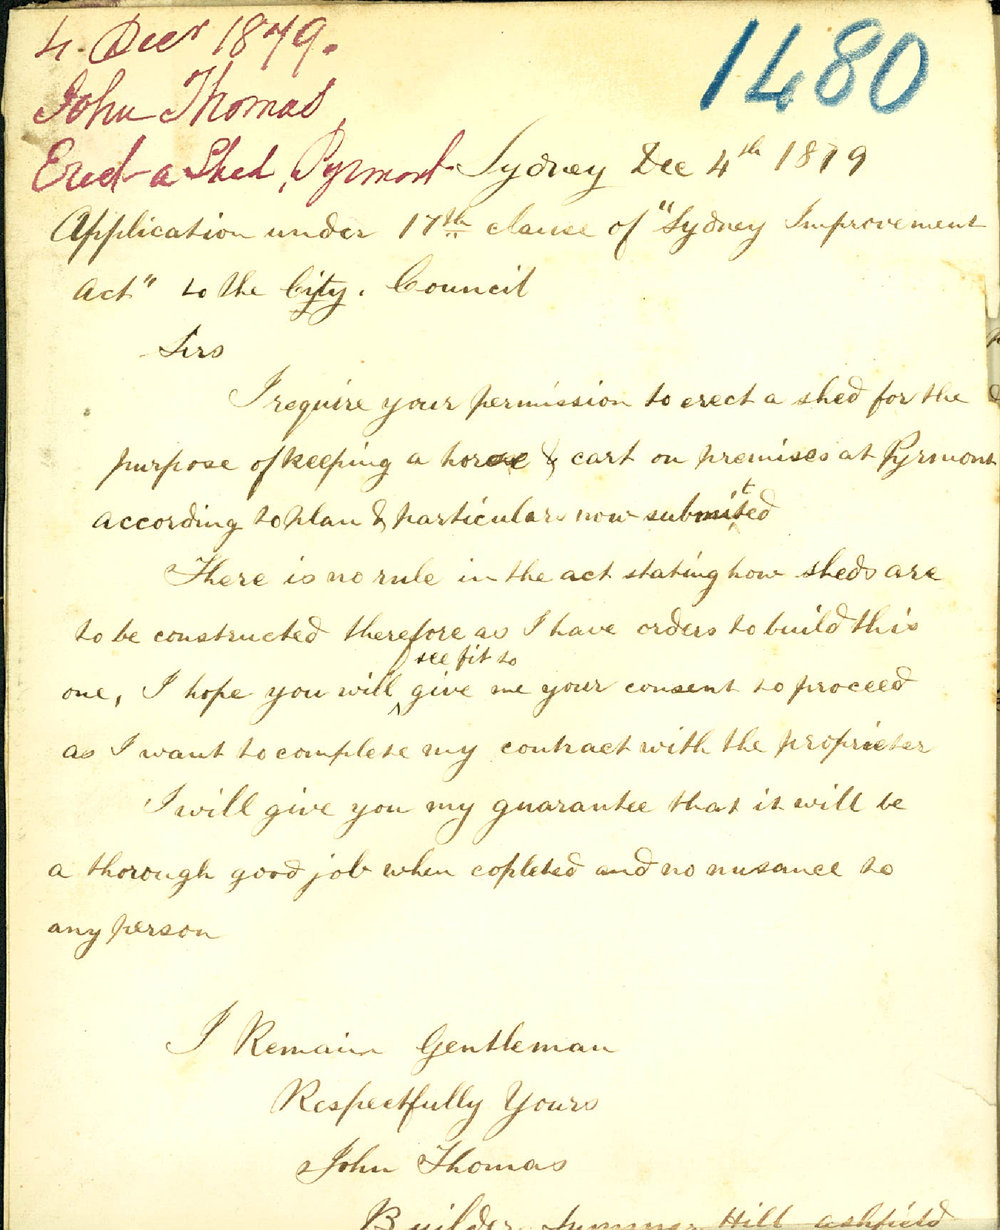 4 Decr 1879.
1480
John Thomas
Erect a Shed, Pyrmont
Sydney Dec 4th 1879
Application under 17th clause of "Sydney Improvement
Act" to the City. Council
Sirs
I require your permission to erect a shed for the
purpose of keeping a horse & cart on premises at Pyrmont
according to plan & particulars now submitted
There is no rule in the act stating how sheds are
to be constructed therefore as I have orders to build this
one, I hope you will see fit to give me your consent to proceed
as I want to complete my contract with the proprieter
I will give you my guarantee that it will be
a thorough good job when copleted and no nusance to
any person
I Remain Gentleman
Respectfully Yours
John Thomas
Builder Summer Hill ashfield